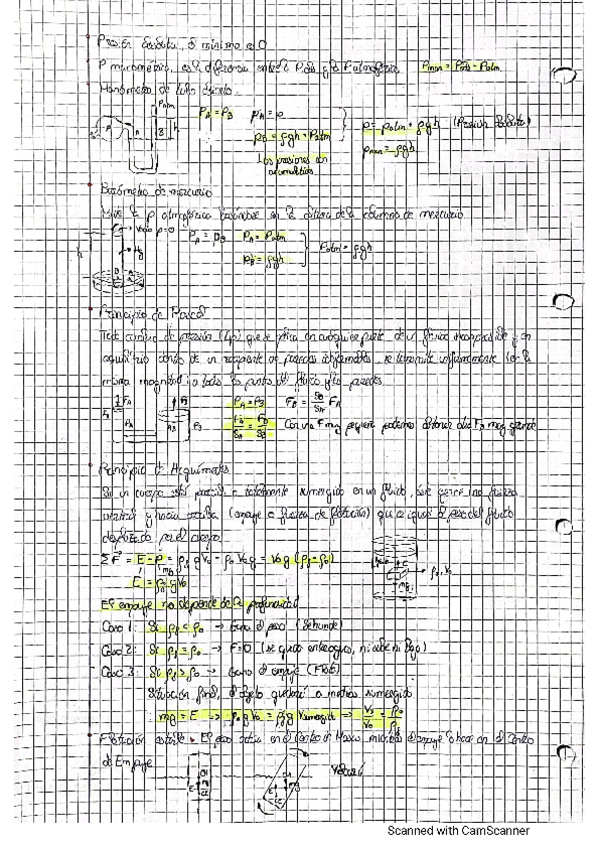 Presión absoluta, mínimo es 0
P manométrica, es la diferencia entre la Pabs y la P atmosférica. Pman = Pabs - Patm
Manómetro de tubo abierto.
PA = PB
PB = ρgh + Patm
Las presiones son
acumulables
p = patm + ρgh (Presión absoluta)
pman = ρgh
Barómetro de mercurio
Mide la p atmosférica basándose en la altura de la columna de mercurio
Vacío p=0
Hg
PA = PB
PA = Patm
PB = ρgh
Patm = ρgh
Principio de Pascal
Todo cambio de presión (Δp) que se aplica en cualquier parte de un fluido incompresible y en
equilibrio dentro de un recipiente de paredes indeformables, se transmite uniformemente (con la
misma magnitud) a todos los puntos del fluido y las paredes
PA = PB
FB = SB/SA FA
FA/SA = FB/SB
Con una F muy pequeña podemos obtener una FB muy grande
Principio de Arquímedes
Si un cuerpo está parcial o totalmente sumergido en un fluido, éste ejerce una fuerza
vertical y hacia arriba (empuje o fuerza de flotación) que es igual al peso del fluido
desplazado por el cuerpo
ΣF = E - P = ρf g V0 - ρ0 V0 g = V0 g (ρf - ρ0)
E = ρf g V0
El empuje no depende de la profundidad
Caso 1: Si ρf < ρ0 → Gana el peso (Se hunde)
Caso 2: Si ρf = ρ0 → F=0 (se queda entre aguas, ni sube ni baja)
Caso 3: Si ρf > ρ0 → Gana el empuje (Flota)
Situación final, el objeto quedará a medias sumergido
mg = E → ρ0 g V0 = ρf g Vsumergido → Vs/V0 = ρ0/ρf
Flotación estable: El peso actúa en el Centro de Masas, mientras el empuje lo hace en el Centro
de Empuje
Volcará
Scanned with CamScanner